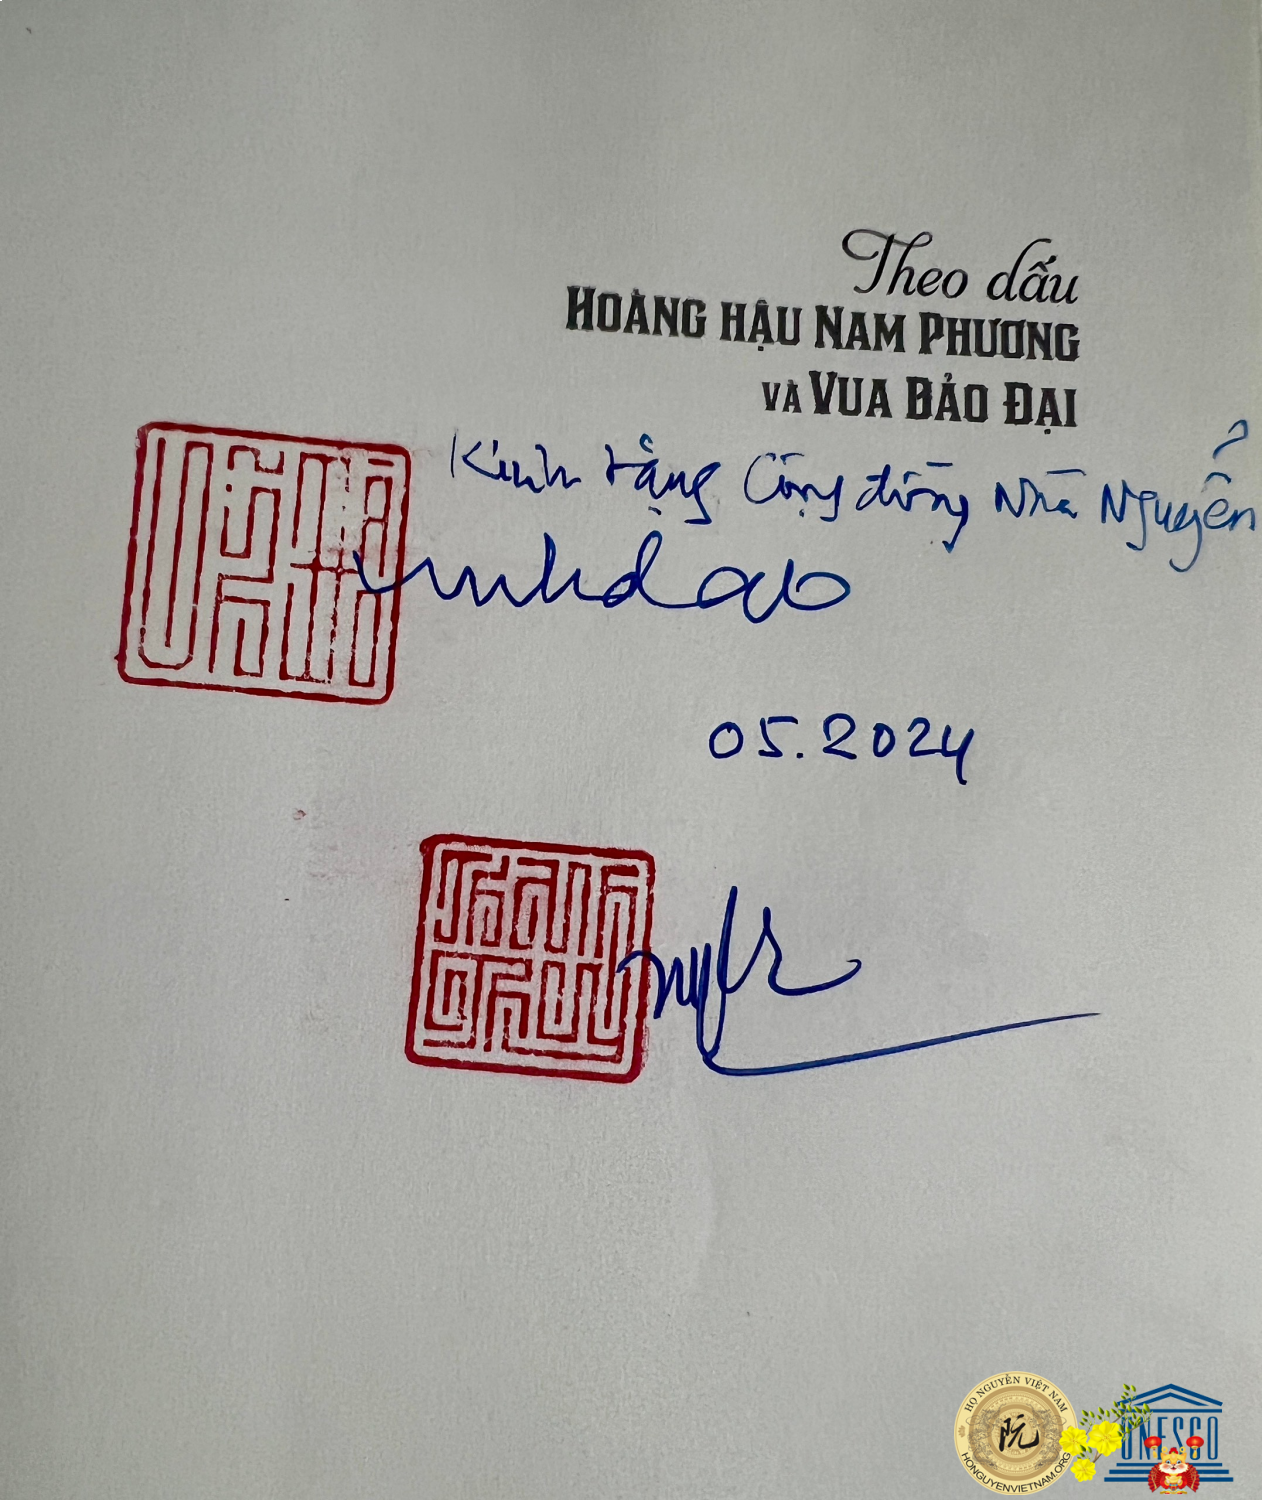 Theo dấu
HOÀNG HẬU NAM PHƯƠNG
VÀ VUA BẢO ĐẠI
Kính tặng Cộng đồng Nhà Nguyễn
vinhdao
05.2024
HỌ NGUYỄN VIỆT NAM
阮
HONGUYENVIETNAM.ORG
UNESCO